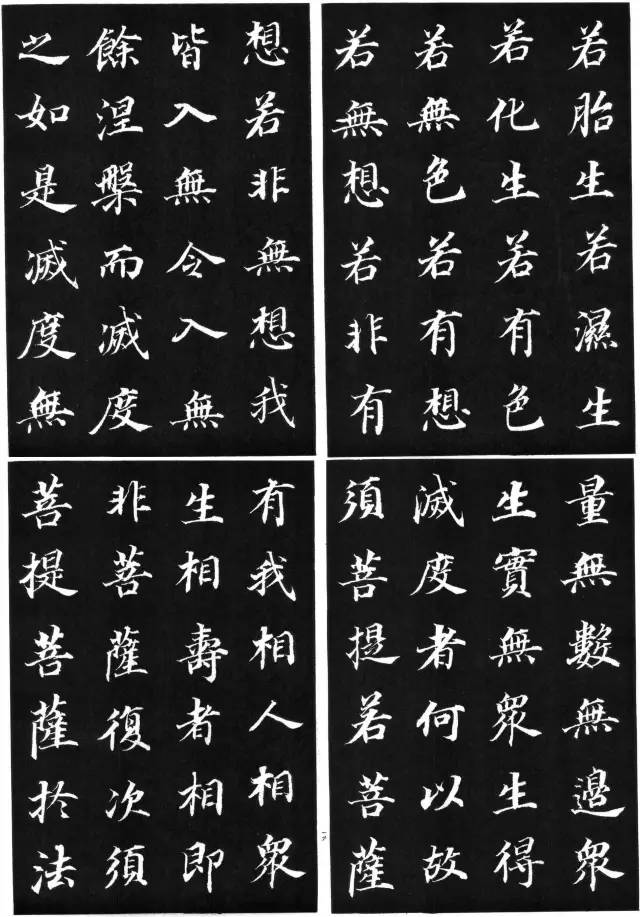 若胎生若濕生
若化生若有色
若無色若有想
若無想若非有
想若非無想我
皆入無令入無
餘涅槃而滅度
之如是滅度無
量無數無邊衆
生實無衆生得
滅度者何以故
須菩提若菩薩
有我相人相衆
生相壽者相即
非菩薩復次須
菩提菩薩於法